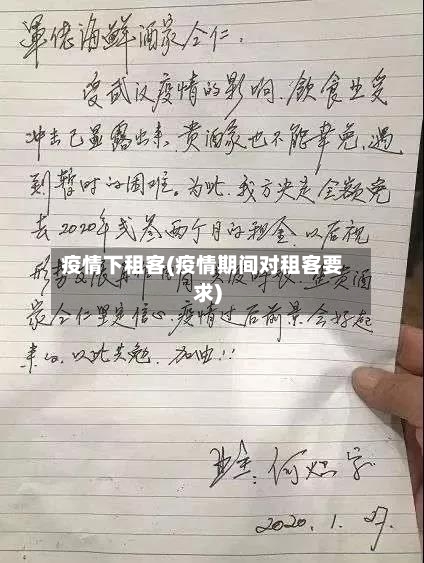 海鲜酒家仝仁:
受武汉疫情的影响,飲食业受
冲击已显露出来,贵酒家也不能幸免,遇
到暂时的困难。为此,我方决定全额免
去2020年弍叁两个月的租金,以后视
疫情下租客(疫情期间对租客要
求)
家仝仁坚定信心,疫情过后前景会好起
来的,以此共勉,加油!!
业主:何
2020.1.27.